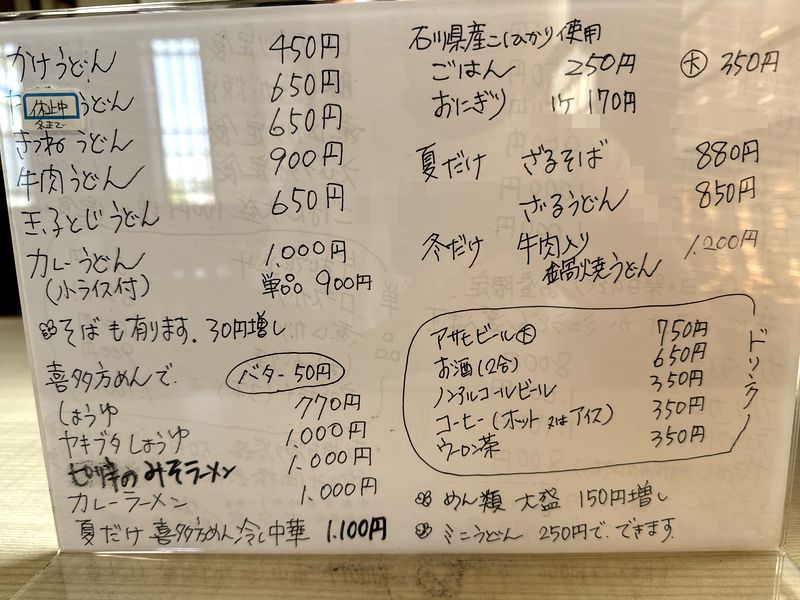 かけうどん 450円
うどん 650円
休止中
冬まで
きつねうどん 650円
牛肉うどん 900円
玉子とじうどん 650円
カレーうどん 1,000円
(小ライス付) 単品 900円
そばも有ります。30円増し
喜多方めんで バター 50円
しょうゆ 770円
ヤキブタしょうゆ 1,000円
のみそラーメン 1,000円
カレーラーメン 1,000円
夏だけ 喜多方めん冷し中華 1,100円
石川県産こしひかり使用
ごはん 250円 大 350円
おにぎり 1ケ 170円
夏だけ ざるそば 880円
ざるうどん 850円
冬だけ 牛肉入り 1,200円
鍋焼うどん
ドリンク
アサヒビール大 750円
お酒(2合) 650円
ノンアルコールビール 350円
コーヒー(ホット又はアイス) 350円
ウーロン茶 350円
めん類 大盛 150円増し
ミニうどん 250円で、できます。